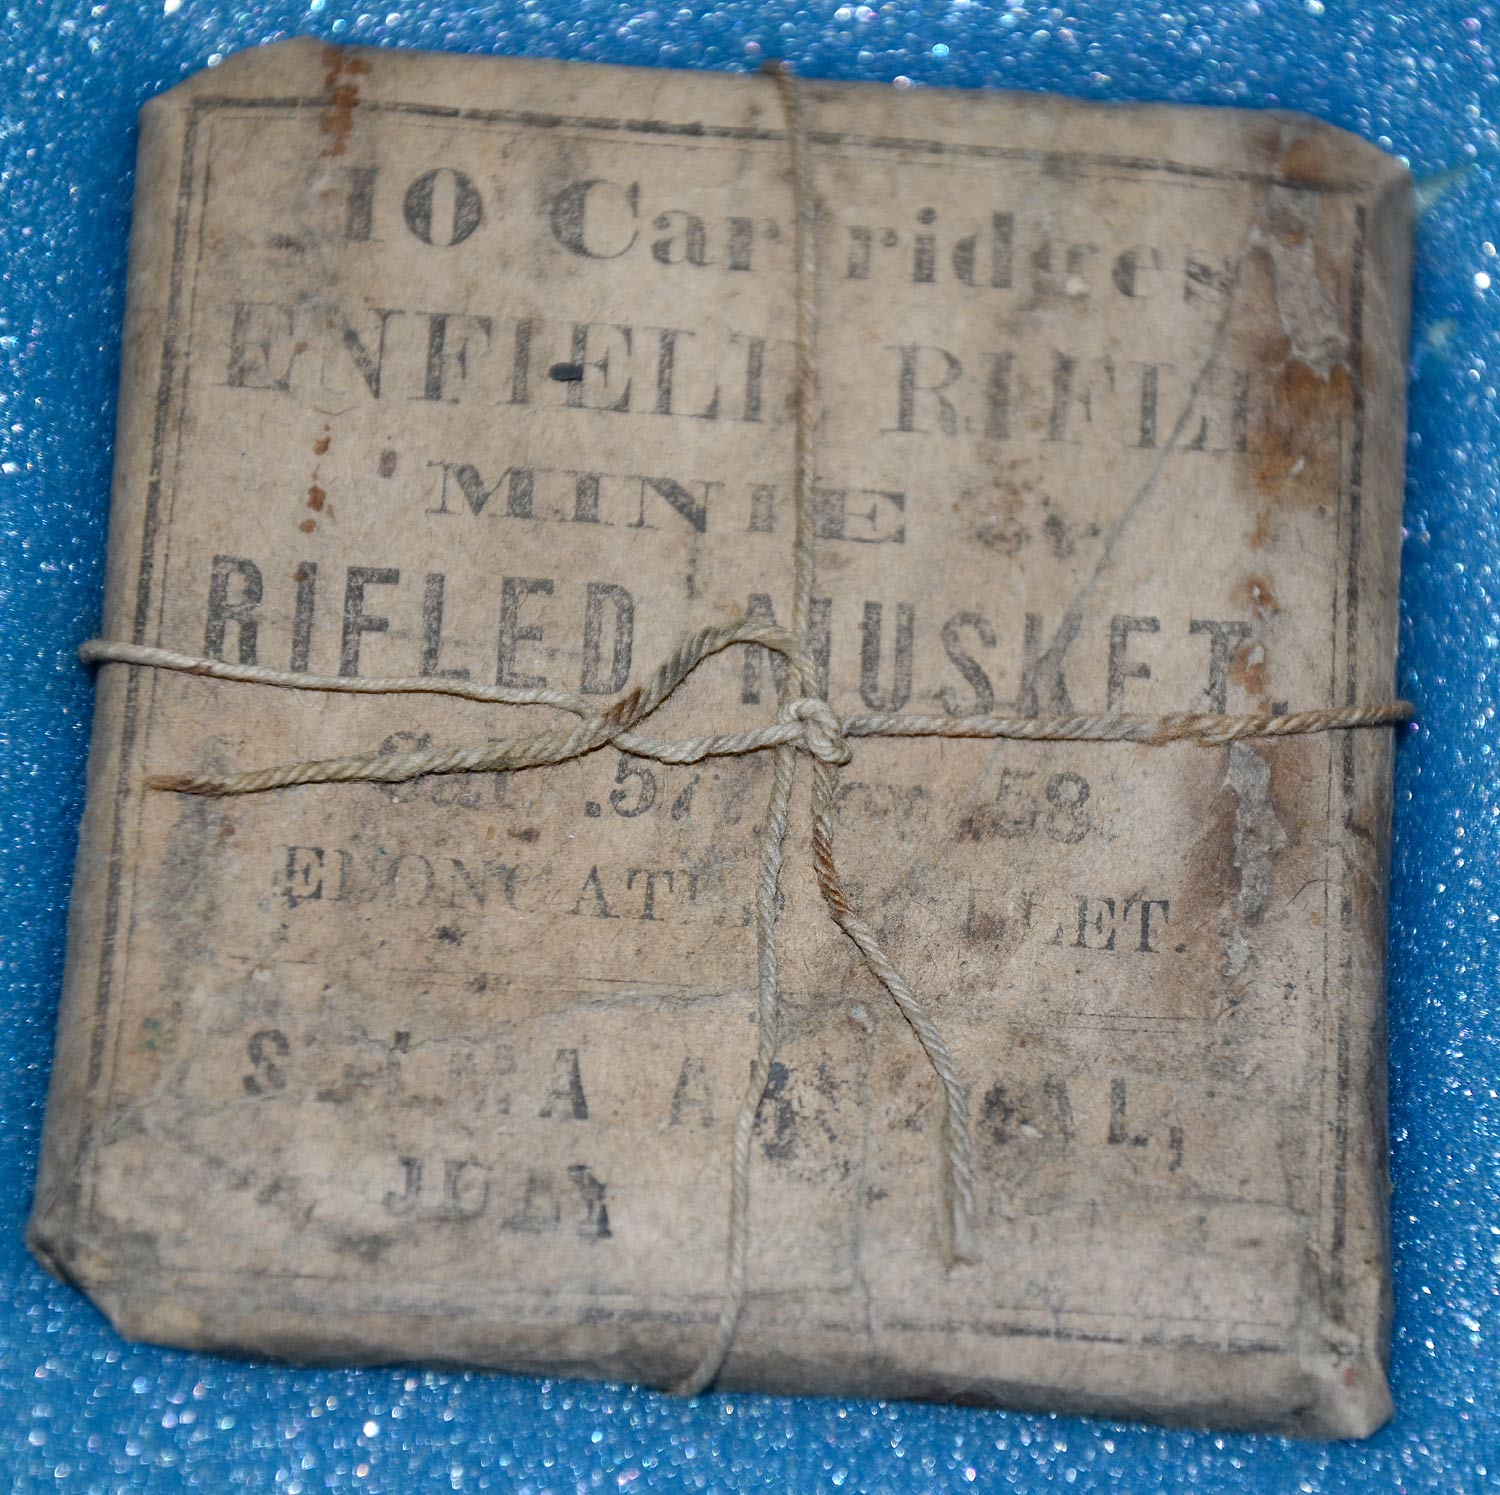 10 Cartridges
ENFIELD RIFLE
MINIE or
RIFLED MUSKET.
Cal. .577, or .58.
ELONGATED BULLET.
SELMA ARSENAL,
JULY